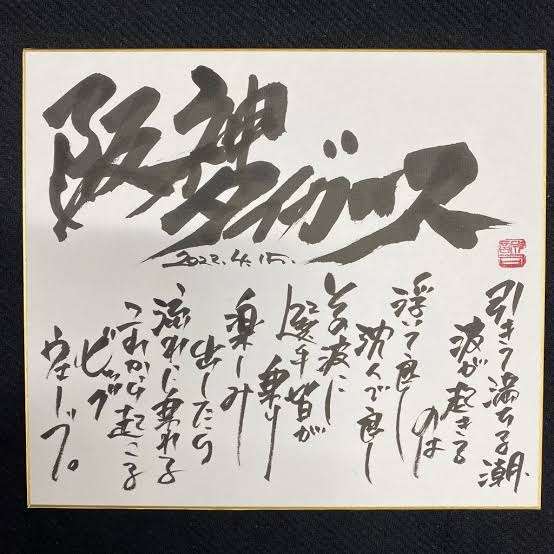 阪神
タイガース
2022.4.15.
引きて満ちる潮、
波が起きる
のは
浮いて良し
沈んで良し
その波に
選手皆が
乗り
楽しみ
出したら
流れに乗れる
これから起こる
ビッグ
ウェーブ。